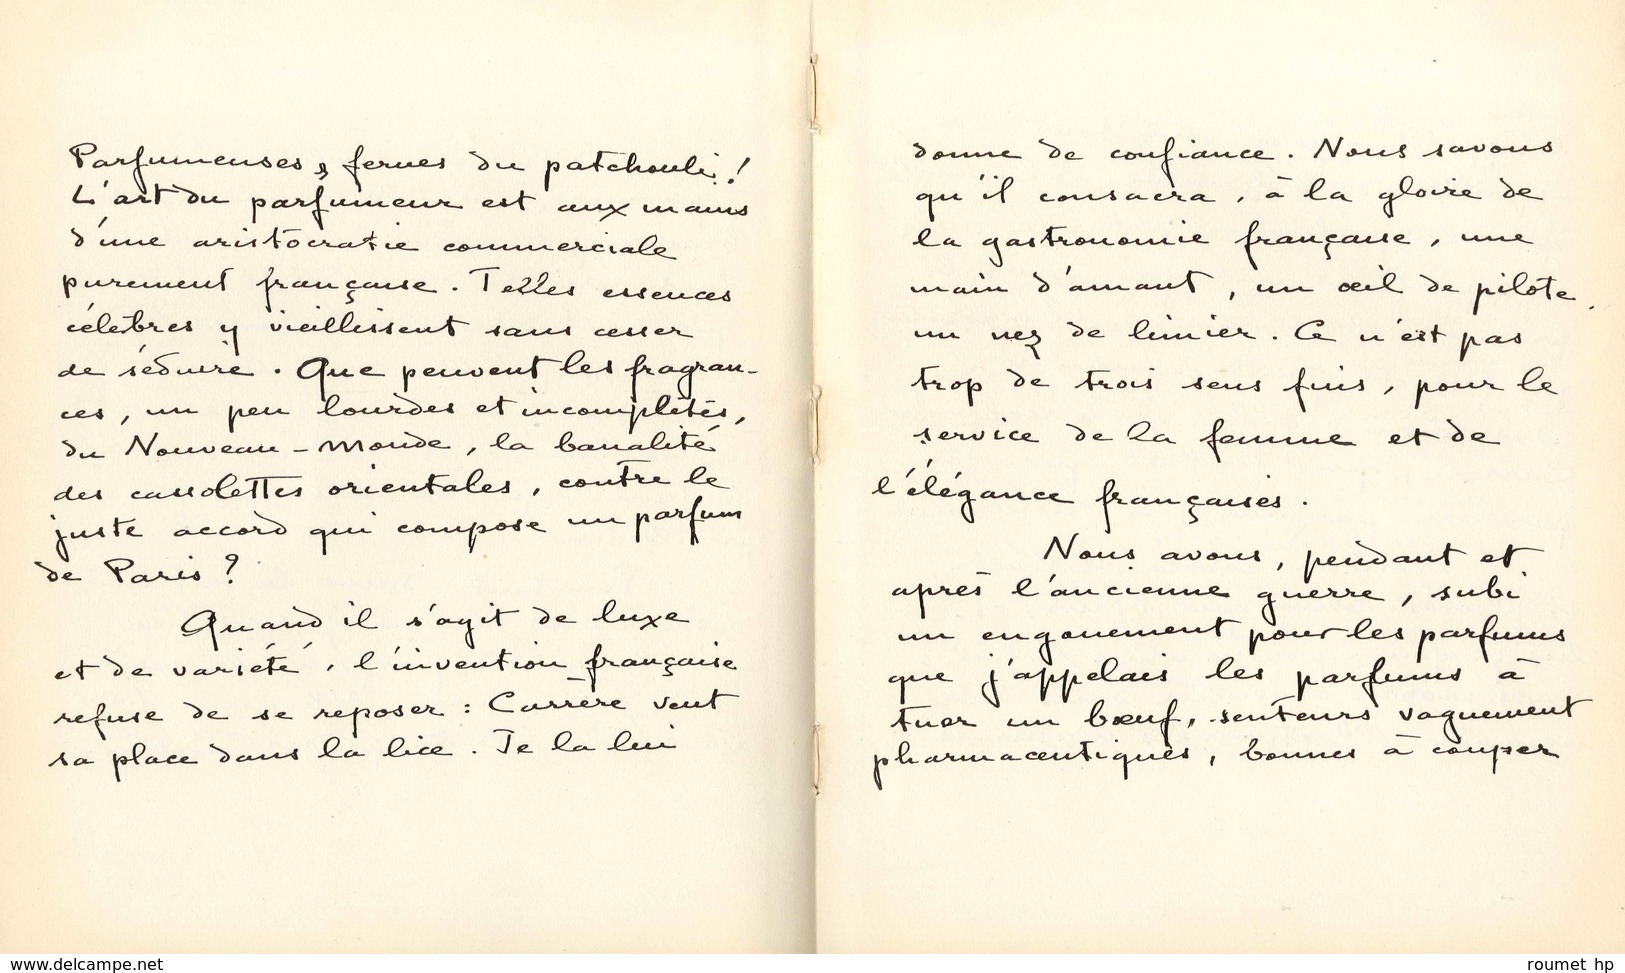 Parfumeuses, ferues du patchouli !
L'art du parfumeur est aux mains
d'une aristocratie commerciale
purement française. Telles essences
célèbres y vieillissent sans cesser
de séduire. Que peuvent les fragran-
ces, un peu lourdes et incomplètes,
du Nouveau-Monde, la banalité
des cassolettes orientales, contre le
juste accord qui compose un parfum
de Paris ?
Quand il s'agit de luxe
et de variété, l'invention française
refuse de se reposer : Carrère veut
sa place dans la lice. Je la lui
donne de confiance. Nous savons
qu'il consacra, à la gloire de
la gastronomie française, une
main d'amant, un œil de pilote,
un nez de limier. Ce n'est pas
trop de trois sens fins, pour le
service de la femme et de
l'élégance françaises.
Nous avons, pendant et
après l'ancienne guerre, subi
un engouement pour les parfums
que j'appelais les parfums à
tuer un bœuf, senteurs vaguement
pharmaceutiques, bonnes à couper
www.delcampe.net
roumet hp